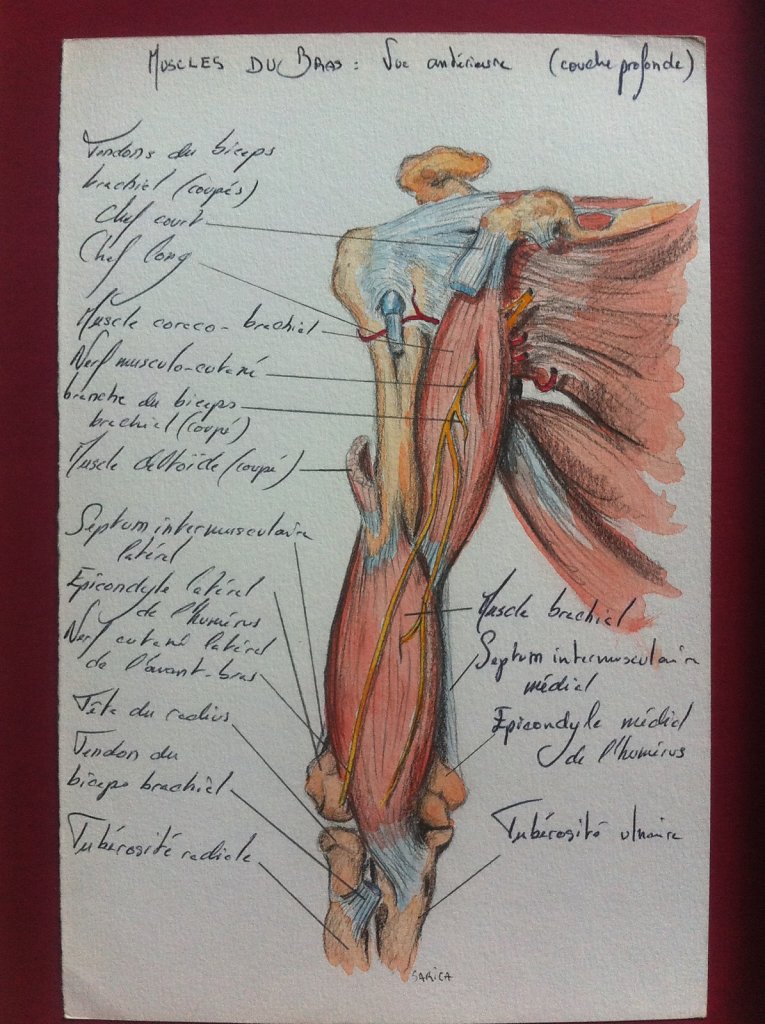 Muscles du Bras : Vue antérieure (couche profonde)
Tendons du biceps
brachial (coupés)
Chef court
Chef long
Muscle coraco-brachial
Nerf musculo-cutané
branche du biceps
brachial (coupé)
Muscle deltoïde (coupé)
Septum intermusculaire
latéral
Epicondyle latéral
de l'humérus
Nerf cutané latéral
de l'avant-bras
Tête du radius
Tendon du
biceps brachial
Tubérosité radiale
Muscle brachial
Septum intermusculaire
médial
Epicondyle médial
de l'humérus
Tubérosité ulnaire
SARICA